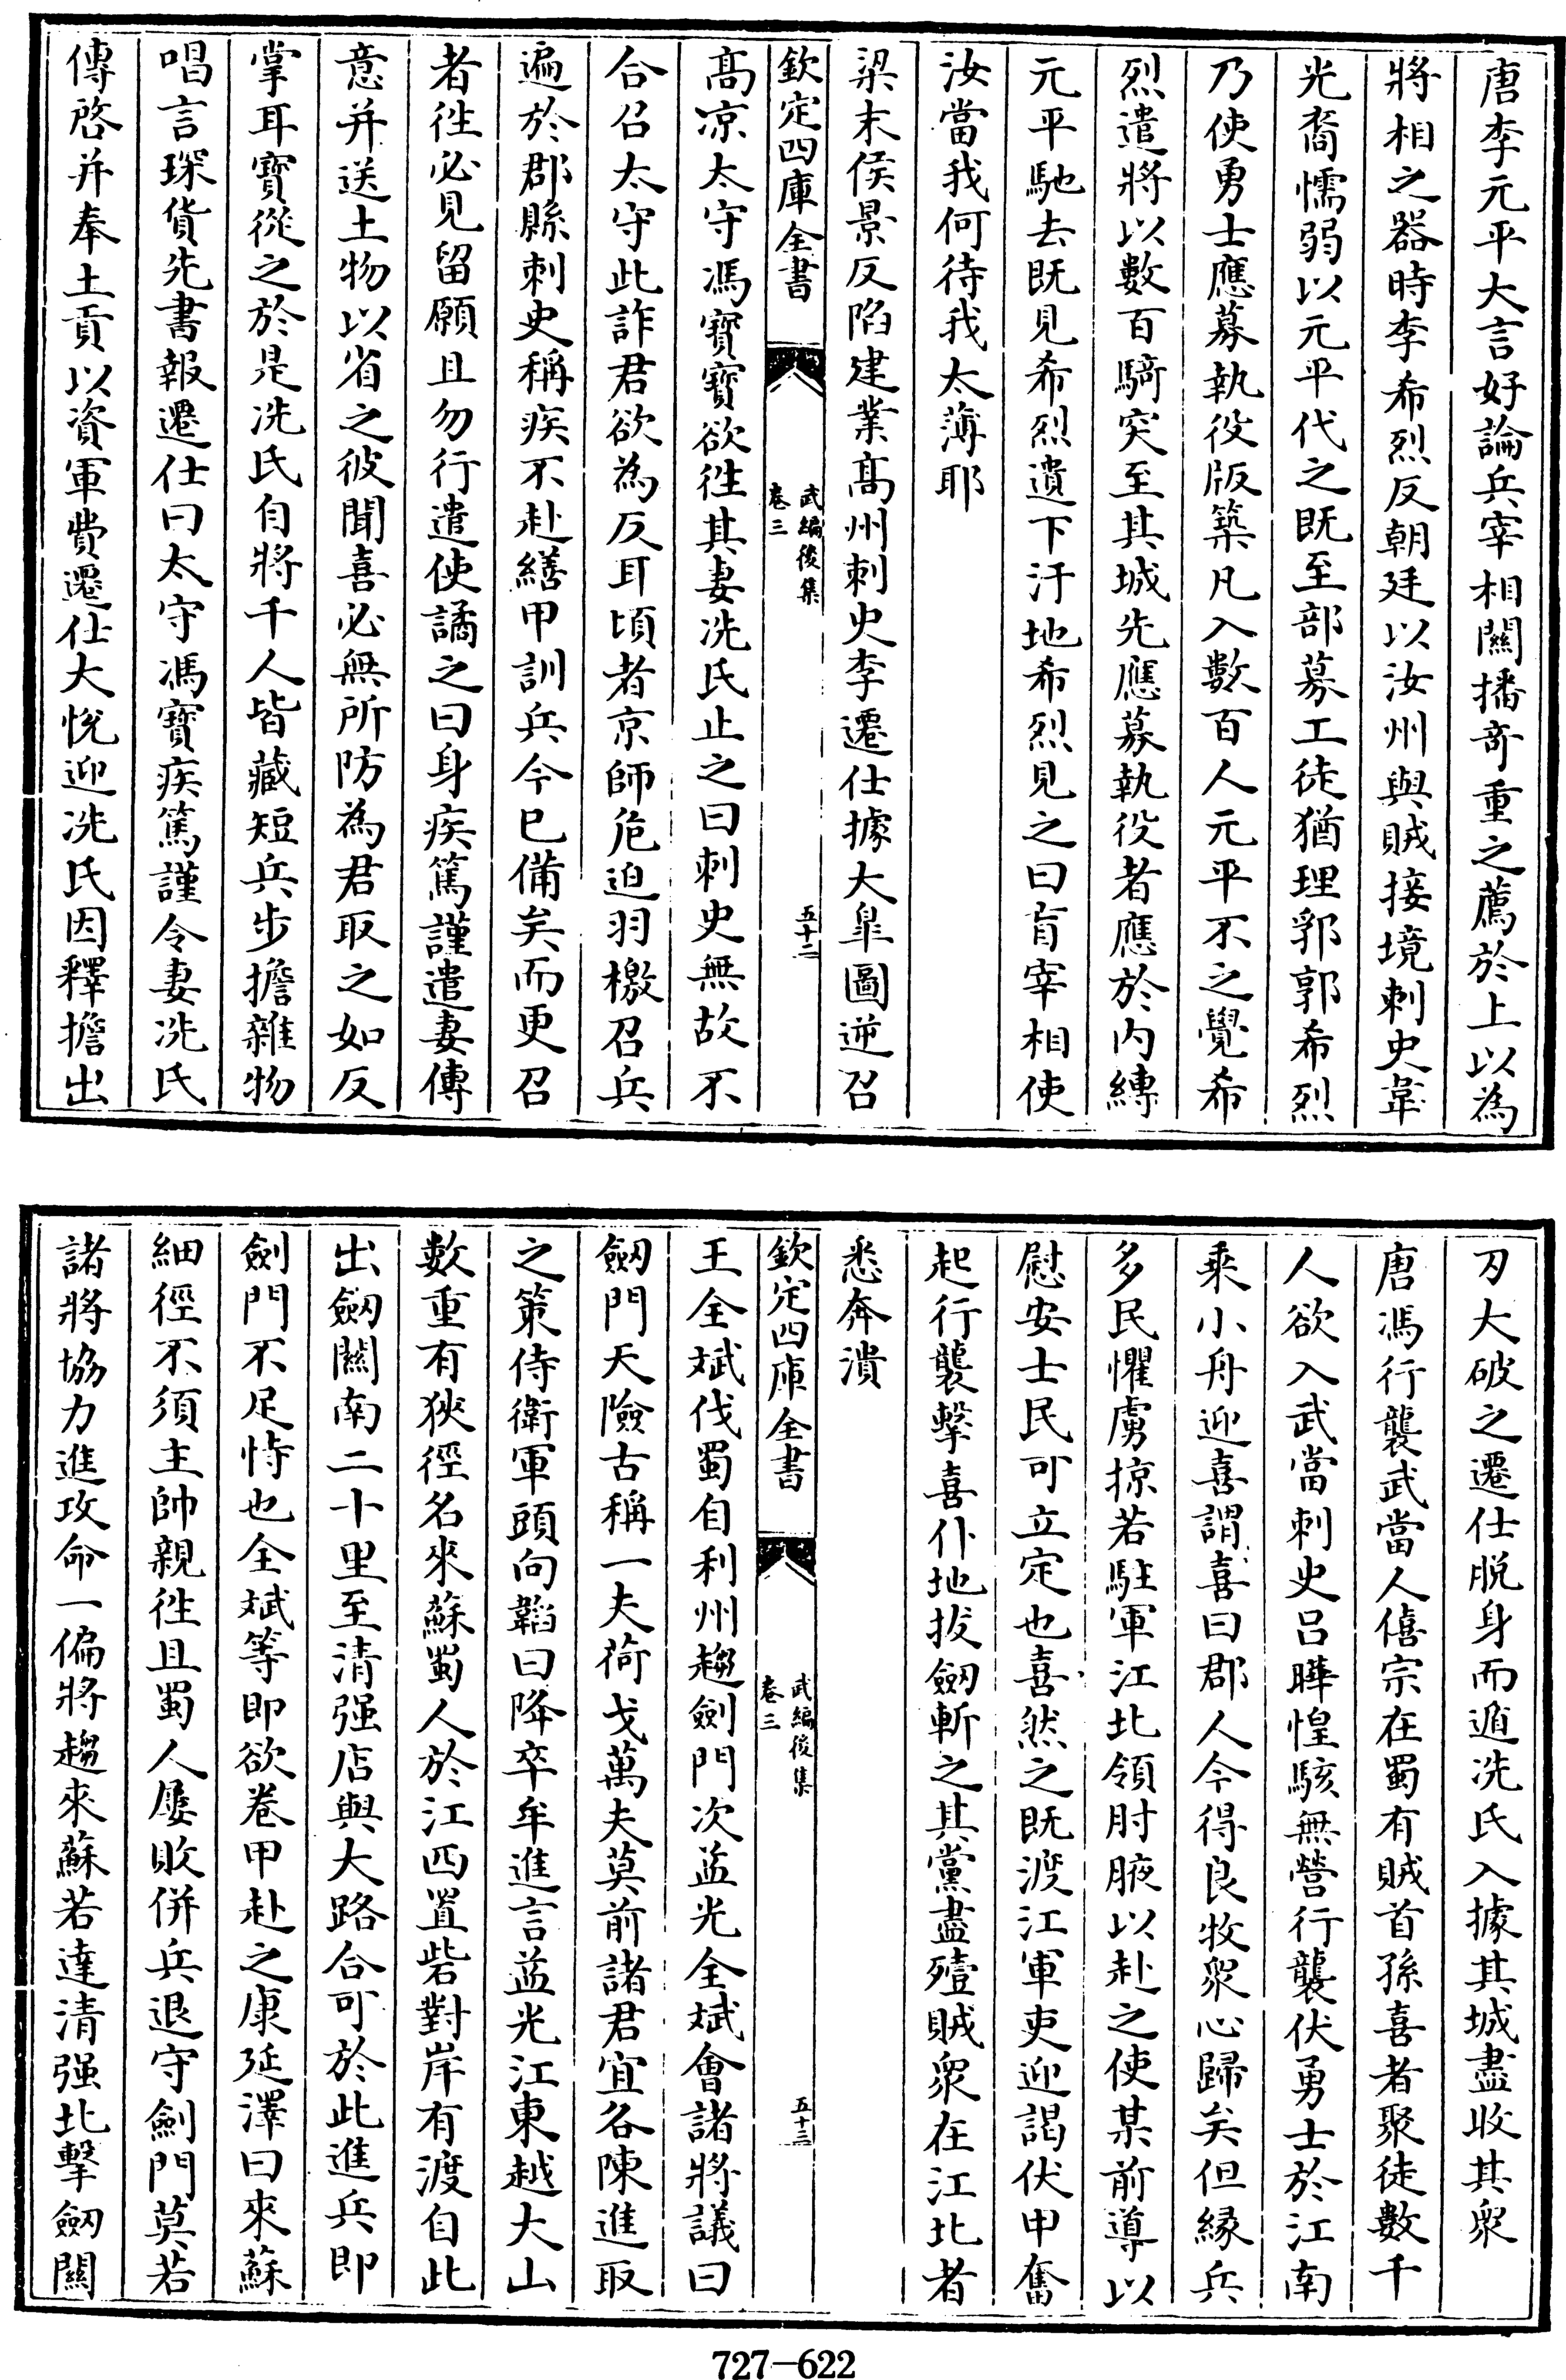 唐李元平大言好論兵宰相關播竒重之薦於上以為
將相之器時李希烈反朝廷以汝州與賊接境刺史韋
光裔懦弱以元平代之既至部募工徒猶理郛郭希烈
乃使勇士應募執役版築凡入數百人元平不之覺希
烈遣將以數百騎突至其城先應募執役者應於内縳
元平馳去既見希烈遺下汙地希烈見之曰盲宰相使
汝當我何待我太薄耶
梁末侯景反陷建業髙州刺史李遷仕據大臯圖逆召
欽定四庫全書
武編後集
卷三
五十二
髙凉太守馮寶寶欲徃其妻冼氏止之曰刺史無故不
合召太守此詐君欲為反耳頃者京師危迫羽檄召兵
遍於郡縣刺史稱疾不赴繕甲訓兵今已備矣而更召
者徃必見留願且勿行遣使譎之曰身疾篤謹遣妻傳
意并送土物以省之彼聞喜必無所防為君取之如反
掌耳寶從之於是冼氏自將千人皆藏短兵步擔雜物
唱言琛貨先書報遷仕曰太守馮寶疾篤謹令妻冼氏
傳啓并奉土貢以資軍費遷仕大恱迎冼氏因釋擔出
刃大破之遷仕脱身而遁冼氏入據其城盡收其衆
唐馮行襲武當人僖宗在蜀有賊首孫喜者聚徒數千
人欲入武當刺史吕曄惶駭無營行襲伏勇士於江南
乘小舟迎喜謂喜曰郡人今得良牧衆心歸矣但縁兵
多民懼虜掠若駐軍江北領肘腋以赴之使某前導以
慰安士民可立定也喜然之既渡江軍吏迎謁伏甲奮
起行襲擊喜仆地拔劔斬之其黨盡殪賊衆在江北者
悉奔潰
欽定四庫全書
武編後集
卷三
五十三
王全斌伐蜀自利州趨劍門次益光全斌會諸將議曰
劔門天險古稱一夫荷戈萬夫莫前諸君宜各陳進取
之策侍衛軍頭向韜曰降卒牟進言益光江東越大山
數重有狹徑名來蘇蜀人於江西置砦對岸有渡自此
出劔關南二十里至清强店與大路合可於此進兵即
劍門不足恃也全斌等即欲卷甲赴之康延澤曰來蘇
細徑不須主帥親徃且蜀人屢敗併兵退守劍門莫若
諸將協力進攻命一偏將趨來蘇若達清强北擊劔關
727-622